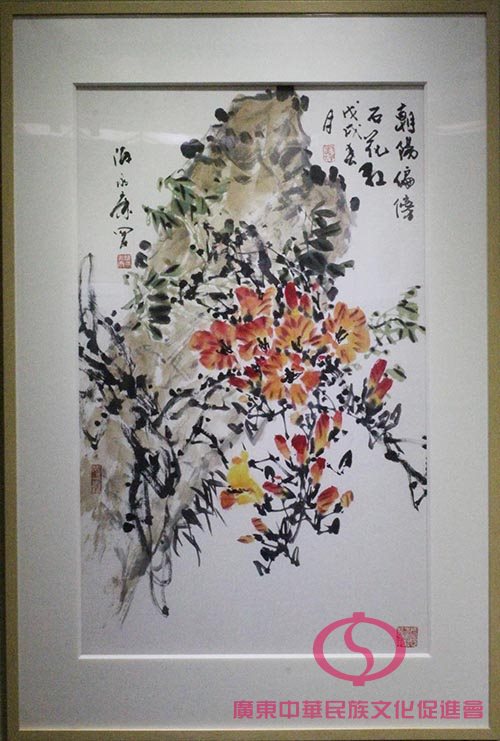 朝陽偏傍
石花红
戊戌春
月
廣東中華民族文化促進會